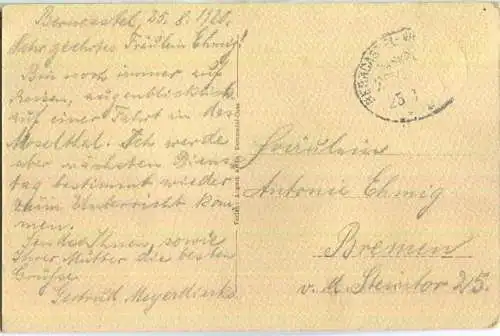 Berncastel, 25. 8. 1920.
Sehr geehrtes Fräulein Ehmig!
Bin noch immer auf
Reisen, augenblicklich
auf einer Fahrt in das
Moselthal. Ich werde
aber nächsten Diens-
tag bestimmt wieder
zum Unterricht kom-
men.
Sende Ihnen, sowie
Ihrer Mutter die besten
Grüße
Gertrud Meyerdierks
BERNCASTEL
25
Fräulein
Antonie Ehmig
Bremen
v. d. Steintor 215.